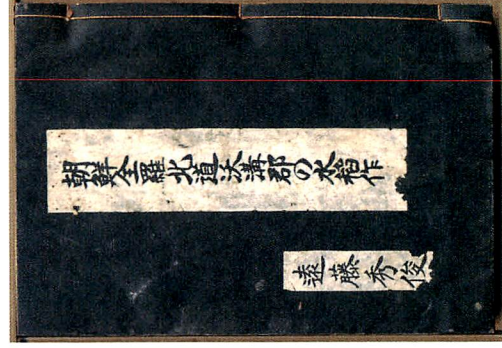 朝鮮全羅北道沃溝郡の水稲作
遠藤秀俊